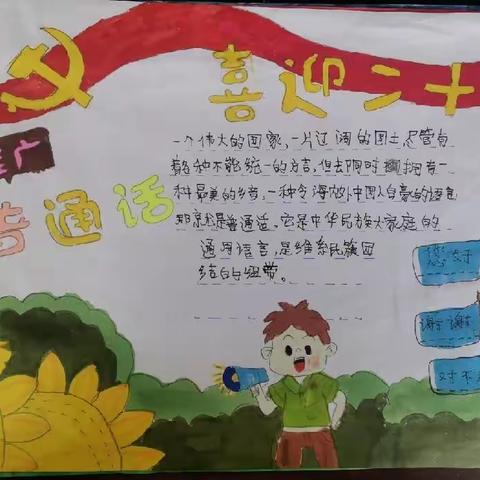 喜迎二十
推广
普通话
一个伟大的国家,一片辽阔的国土,尽管有
种不能统一的方言,但却同时拥有一
种最美的乡音,一种令海内外中国人自豪的语言
那就是普通话。它是中华民族大家庭的
通用语言,是维系民族团
结的纽带。
您好
谢谢
对不